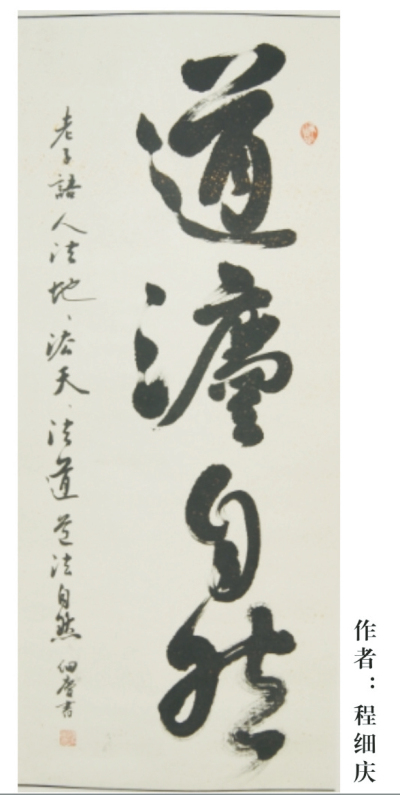 道灋自然
老子語人法地、法天、法道道法自然 细慶書
作者：程细庆